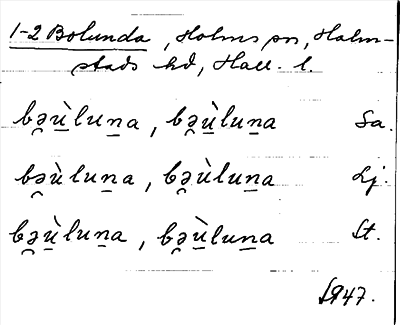 1-2 Bolunda, Holms sn, Halm-
stads hd, Hall. l.
bə̯ù̲lun̲a, bə̯ù̲lun̲a Sa.
bə̯ùlun̲a, bə̯ùlun̲a Lj.
bə̯ù̲lun̲a, bə̯ù̲lun̲a St.
1947.